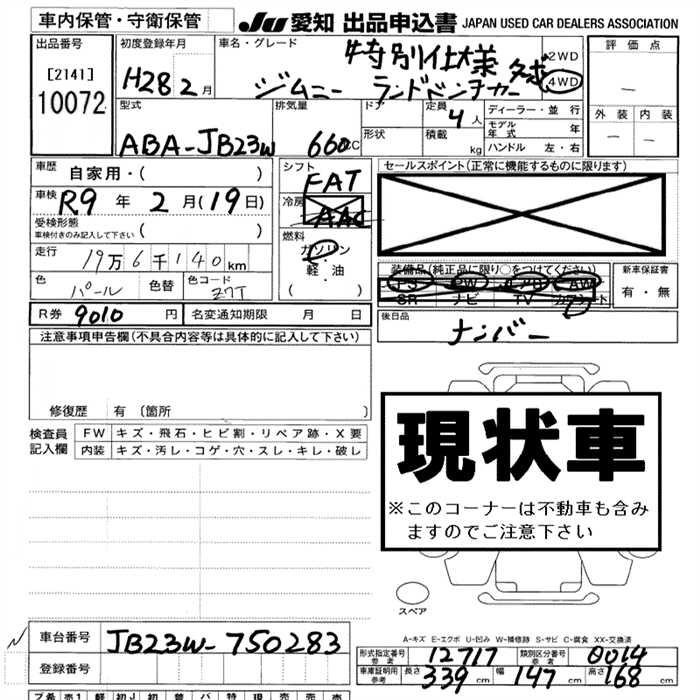 車内保管・守衛保管
JU 愛知 出品申込書 JAPAN USED CAR DEALERS ASSOCIATION
出品番号
[2141]
10072
初度登録年月
H28 2月
車名・グレード
特別仕様
ジムニー ランドベンチャー
2WD
4WD
評価点
－
外装 内装
－ －
型式
ABA-JB23W
排気量
660CC
ドア
形状
定員
4人
積載
kg
ディーラー・並行
モデル年式 年
ハンドル 左・右
車歴
自家用・( )
車検 R9年 2月(19日)
受検形態
車検付きのみ記入して下さい ( )
走行
19万6千140km
色
パール
色替
色コード
Z7T
シフト
FAT
冷房
AAC
燃料
ガソリン
・
軽・油
( )
セールスポイント(正常に機能するものに限ります)
装備品(純正品に限り○をつけてください)
PS PW エアB AW
SR ナビ TV カワシート
新車保証書
有・無
R券 9010円
名変通知期限 月 日
後日品
ナンバー
注意事項申告欄(不具合内容等は具体的に記入して下さい)
修復歴 有(箇所 )
検査員
記入欄
FW キズ・飛石・ヒビ割・リペア跡・X要
内装 キズ・汚レ・コゲ・穴・スレ・キレ・破レ
現状車
※このコーナーは不動車も含み
ますのでご注意下さい
スペア
A-キズ E-エクボ U-凹み W-補修跡 S-サビ C-腐食 XX-交換済
車台番号 JB23W-750283
登録番号
形式指定番号 参考 12717
類別区分番号 参考 0014
車庫証明用 参考 長さ 339cm 幅 147cm 高さ 168cm